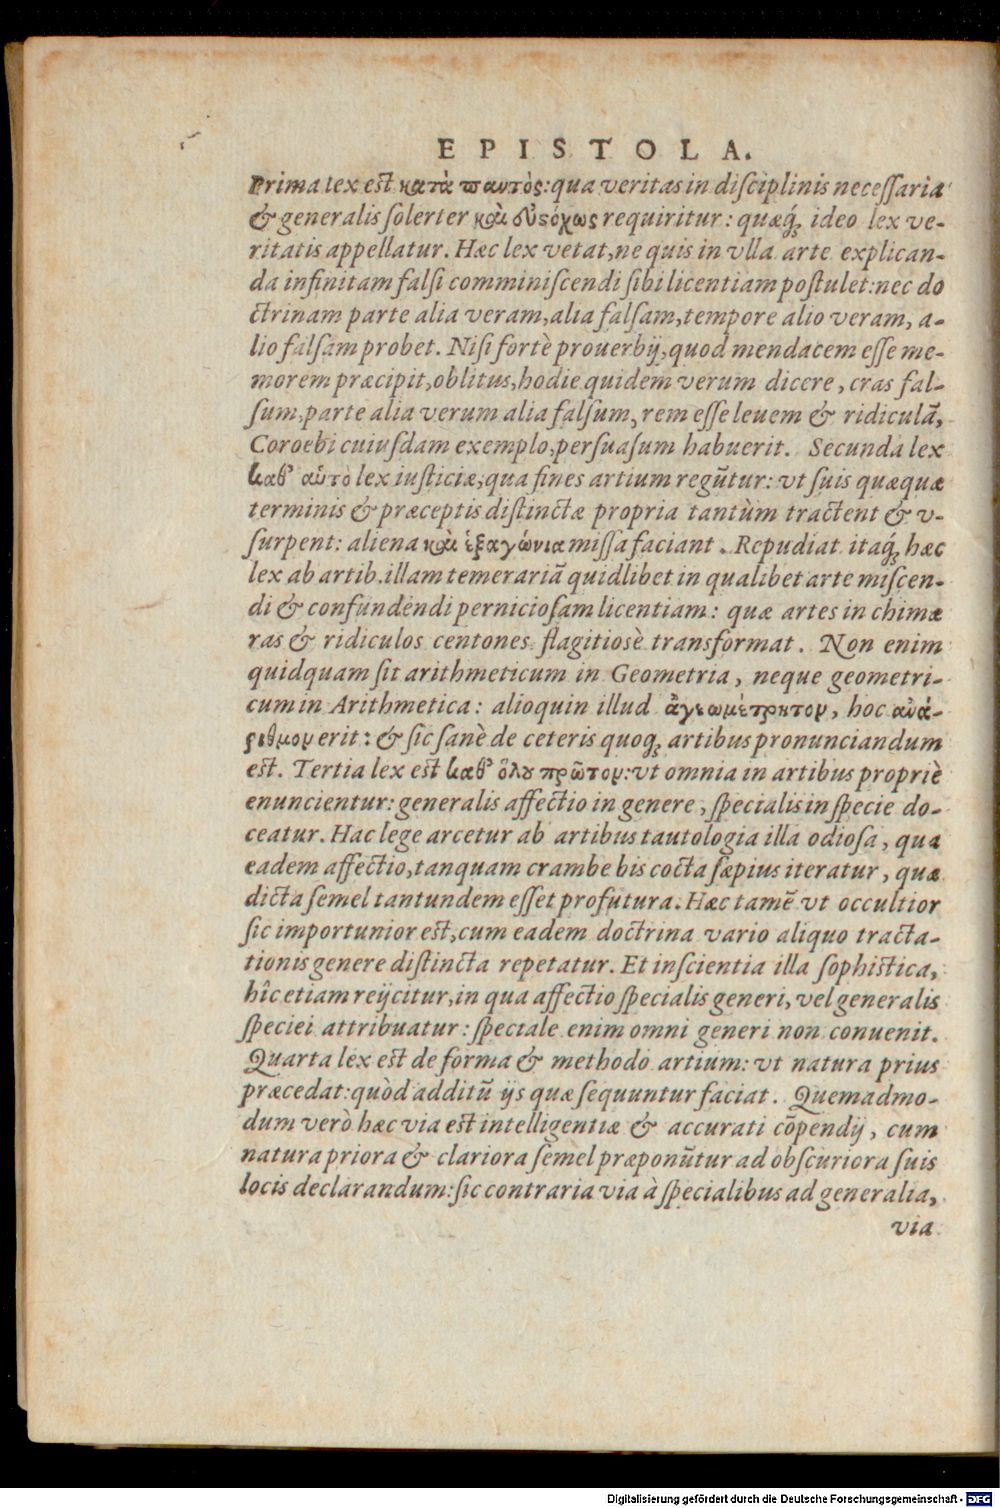 EPISTOLA.
Prima lex est κατὰ παντὸς: qua veritas in diſciplinis neceſſaria
& generalis ſolerter καὶ εὐςόχως requiritur: quæq́ꝫ ideo lex ve-
ritatis appellatur. Hæc lex vetat, ne quis in vlla arte explican-
da infinitam falſi comminiſcendi ſibi licentiam poſtulet: nec do
ctrinam parte alia veram, alia falſam, tempore alio veram, a-
lio falſam probet. Niſi fortè prouerbij, quod mendacem eſſe me-
morem præcipit, oblitus, hodie quidem verum dicere, cras fal-
ſum, parte alia verum alia falſum, rem eſſe leuem & ridiculã,
Coroebi cuiuſdam exemplo, perſuaſum habuerit. Secunda lex
καθ᾽ αὑτὸ lex iuſticiæ, qua fines artium regũtur: vt ſuis quæquæ
terminis & præceptis diſtinctæ propria tantùm tractent & v-
ſurpent: aliena καὶ ἐξαγώνια miſſa faciant. Repudiat itaq́ꝫ hæc
lex ab artib. illam temerariã quidlibet in qualibet arte miſcen-
di & confundendi pernicioſam licentiam: quæ artes in chimæ
ras & ridiculos centones flagitioſè transformat. Non enim
quidquam ſit arithmeticum in Geometria, neque geometri-
cum in Arithmetica: alioquin illud ἀγεωμέτρητον, hoc ἀνά-
ριθμον erit: & ſic ſanè de ceteris quoqꝫ artibus pronunciandum
est. Tertia lex est καθ᾽ ὅλου πρῶτον: vt omnia in artibus propriè
enuncientur: generalis affectio in genere, ſpecialis in ſpecie do-
ceatur. Hac lege arcetur ab artibus tautologia illa odioſa, qua
eadem affectio, tanquam crambe bis cocta ſæpius iteratur, quæ
dicta ſemel tantundem eſſet profutura. Hæc tamẽ vt occultior
ſic importunior est, cum eadem doctrina vario aliquo tracta-
tionis genere diſtincta repetatur. Et inſcientia illa ſophiſtica,
hîc etiam reijcitur, in qua affectio ſpecialis generi, vel generalis
ſpeciei attribuatur: ſpeciale enim omni generi non conuenit.
Quarta lex est de forma & methodo artium: vt natura prius
præcedat: quòd additũ ijs quæ ſequuntur faciat. Quemadmo-
dum verò hæc via est intelligentiæ & accurati cõpendij, cum
natura priora & clariora ſemel præponũtur ad obſcuriora ſuis
locis declarandum: ſic contraria via à ſpecialibus ad generalia,
via
Digitalisierung gefördert durch die Deutsche Forschungsgemeinschaft - DFG